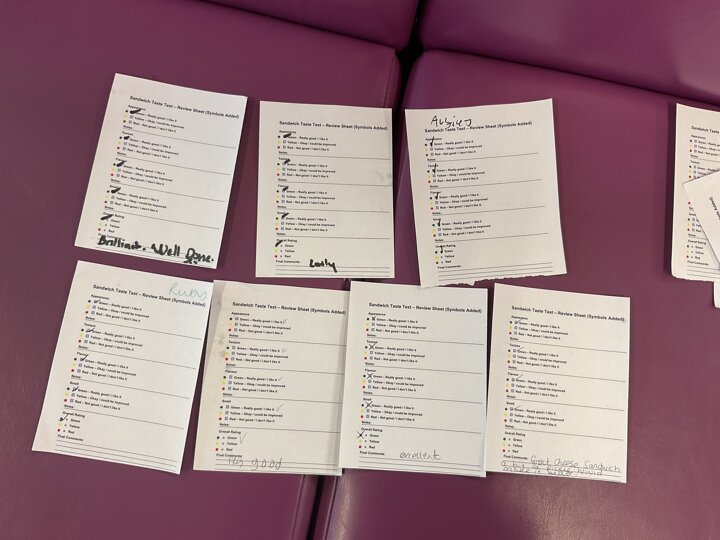 Sandwich Taste Test – Review Sheet (Symbols Added)
Appearance
Green – Really good / I like it
Yellow – Okay / could be improved
Red – Not good / I don't like it
Notes:
Texture
Green – Really good / I like it
Yellow – Okay / could be improved
Red – Not good / I don't like it
Notes:
Green – Really good / I like it
Yellow – Okay / could be improved
Red – Not good / I don't like it
Notes:
Green – Really good / I like it
Yellow – Okay / could be improved
Red – Not good / I don't like it
Notes:
Rating
Green
Yellow
Red
Brilliant. Well Done.
Sandwich Taste Test – Review Sheet (Symbols Added)
Appearance
Green – Really good / I like it
Yellow – Okay / could be improved
Red – Not good / I don't like it
Notes:
Green – Really good / I like it
Yellow – Okay / could be improved
Red – Not good / I don't like it
Notes:
Green – Really good / I like it
Yellow – Okay / could be improved
Red – Not good / I don't like it
Notes:
Green – Really good / I like it
Yellow – Okay / could be improved
Red – Not good / I don't like it
Notes:
Overall Rating
Green
Yellow
Red
Final Comments:
Sandwich Taste Test – Review Sheet (Symbols Added)
Appearance
Green – Really good / I like it
Yellow – Okay / could be improved
Red – Not good / I don't like it
Notes:
Texture
Green – Really good / I like it
Yellow – Okay / could be improved
Red – Not good / I don't like it
Notes:
Flavour
Green – Really good / I like it
Yellow – Okay / could be improved
Red – Not good / I don't like it
Notes:
Smell
Green – Really good / I like it
Yellow – Okay / could be improved
Red – Not good / I don't like it
Notes:
Overall Rating
Green
Yellow
Red
Final Comments:
Ruby
Sandwich Taste Test – Review Sheet (Symbols Added)
Appearance
Green – Really good / I like it
Yellow – Okay / could be improved
Red – Not good / I don't like it
Notes:
Texture
Green – Really good / I like it
Yellow – Okay / could be improved
Red – Not good / I don't like it
Notes:
Flavour
Green – Really good / I like it
Yellow – Okay / could be improved
Red – Not good / I don't like it
Notes:
Smell
Green – Really good / I like it
Yellow – Okay / could be improved
Red – Not good / I don't like it
Notes:
Overall Rating
Green
Yellow
Red
Final Comments:
Sandwich Taste Test – Review Sheet (Symbols Added)
Appearance
Green – Really good / I like it
Yellow – Okay / could be improved
Red – Not good / I don't like it
Notes:
Texture
Green – Really good / I like it
Yellow – Okay / could be improved
Red – Not good / I don't like it
Notes:
Flavour
Green – Really good / I like it
Yellow – Okay / could be improved
Red – Not good / I don't like it
Notes:
Smell
Green – Really good / I like it
Yellow – Okay / could be improved
Red – Not good / I don't like it
Notes:
Overall Rating
Green
Yellow
Red
Final Comments:
good
Sandwich Taste Test – Review Sheet (Symbols Added)
Appearance
Green – Really good / I like it
Yellow – Okay / could be improved
Red – Not good / I don't like it
Notes:
Texture
Green – Really good / I like it
Yellow – Okay / could be improved
Red – Not good / I don't like it
Notes:
Flavour
Green – Really good / I like it
Yellow – Okay / could be improved
Red – Not good / I don't like it
Notes:
Smell
Green – Really good / I like it
Yellow – Okay / could be improved
Red – Not good / I don't like it
Notes:
Overall Rating
Green
Yellow
Red
Final Comments:
excellent
Sandwich Taste Test – Review Sheet (Symbols Added)
Appearance
Green – Really good / I like it
Yellow – Okay / could be improved
Red – Not good / I don't like it
Notes:
Texture
Green – Really good / I like it
Yellow – Okay / could be improved
Red – Not good / I don't like it
Notes:
Flavour
Green – Really good / I like it
Yellow – Okay / could be improved
Red – Not good / I don't like it
Notes:
Smell
Green
Yellow – Okay / could be improved
Red – Not good / I don't like it
Notes:
Overall Rating
Green
Yellow
Red
Final Comments: Great cheese Sandwich
a bit would
make it better